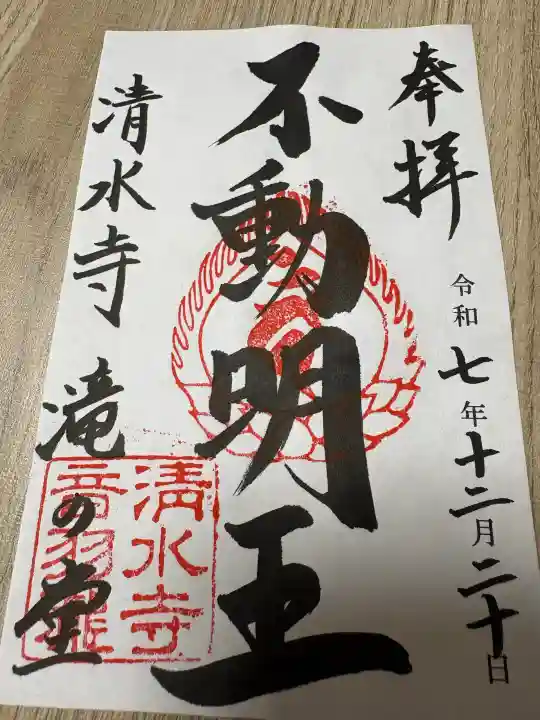 奉拝
令和七年十二月二十日
不動明王
清水寺 滝の堂
清水寺
音羽滝